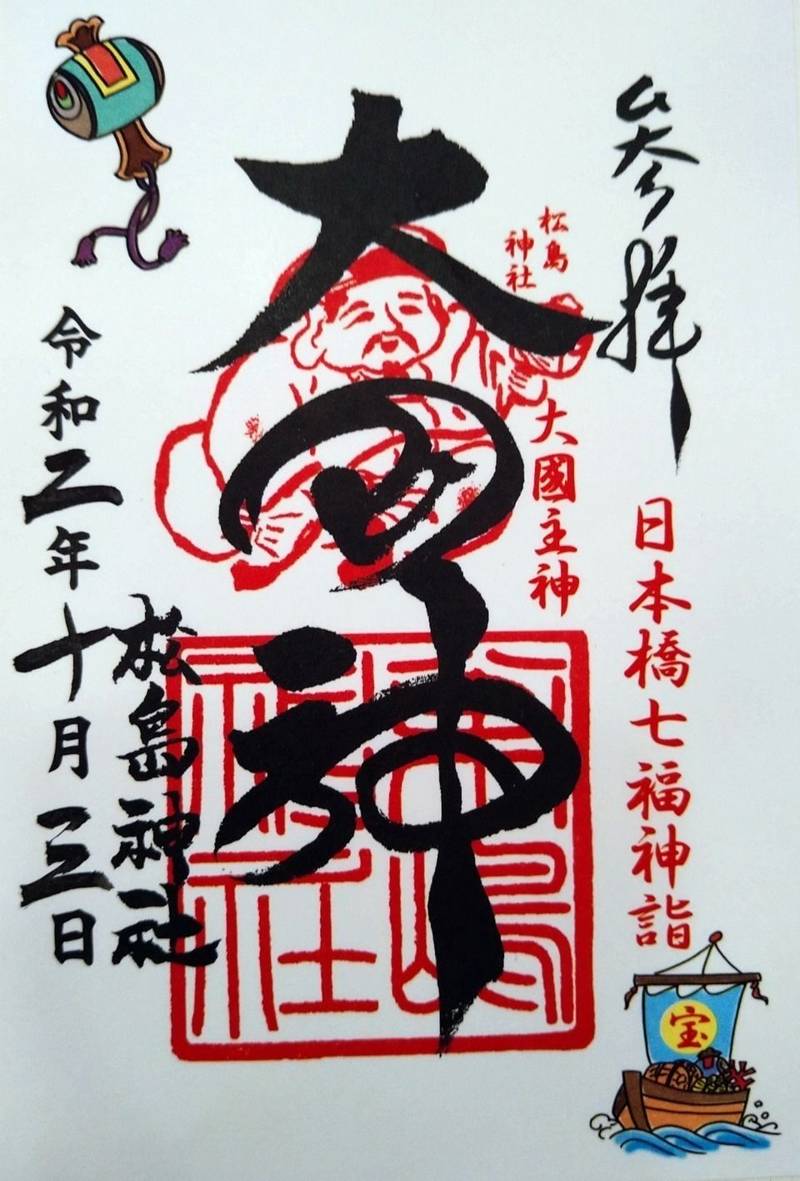 参拝
日本橋七福神詣
松島
神社
大國主神
大国神
松島神社
令和二年十月三日
宝